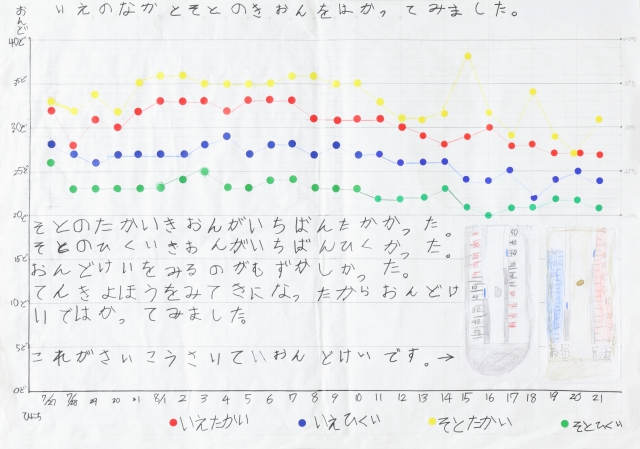 いえのなかとそとのきおんをはかってみました。
おんど
40℃
35℃
30℃
25℃
20℃
15℃
10℃
5℃
0℃
そとのたかいきおんがいちばんたかかった。
そとのひくいきおんがいちばんひくかった。
おんどけいをみるのがむずかしかった。
てんきよほうをみてきになったからおんどけ
いではかってみました。
これがさいこうさいていおんどけいです。→
7/27 7/28 29 30 31 8/1 2 3 4 5 6 7 8 9 10 11 12 13 14 15 16 17 18 19 20 21
ひにち
いえたかい いえひくい そとたかい そとひくい